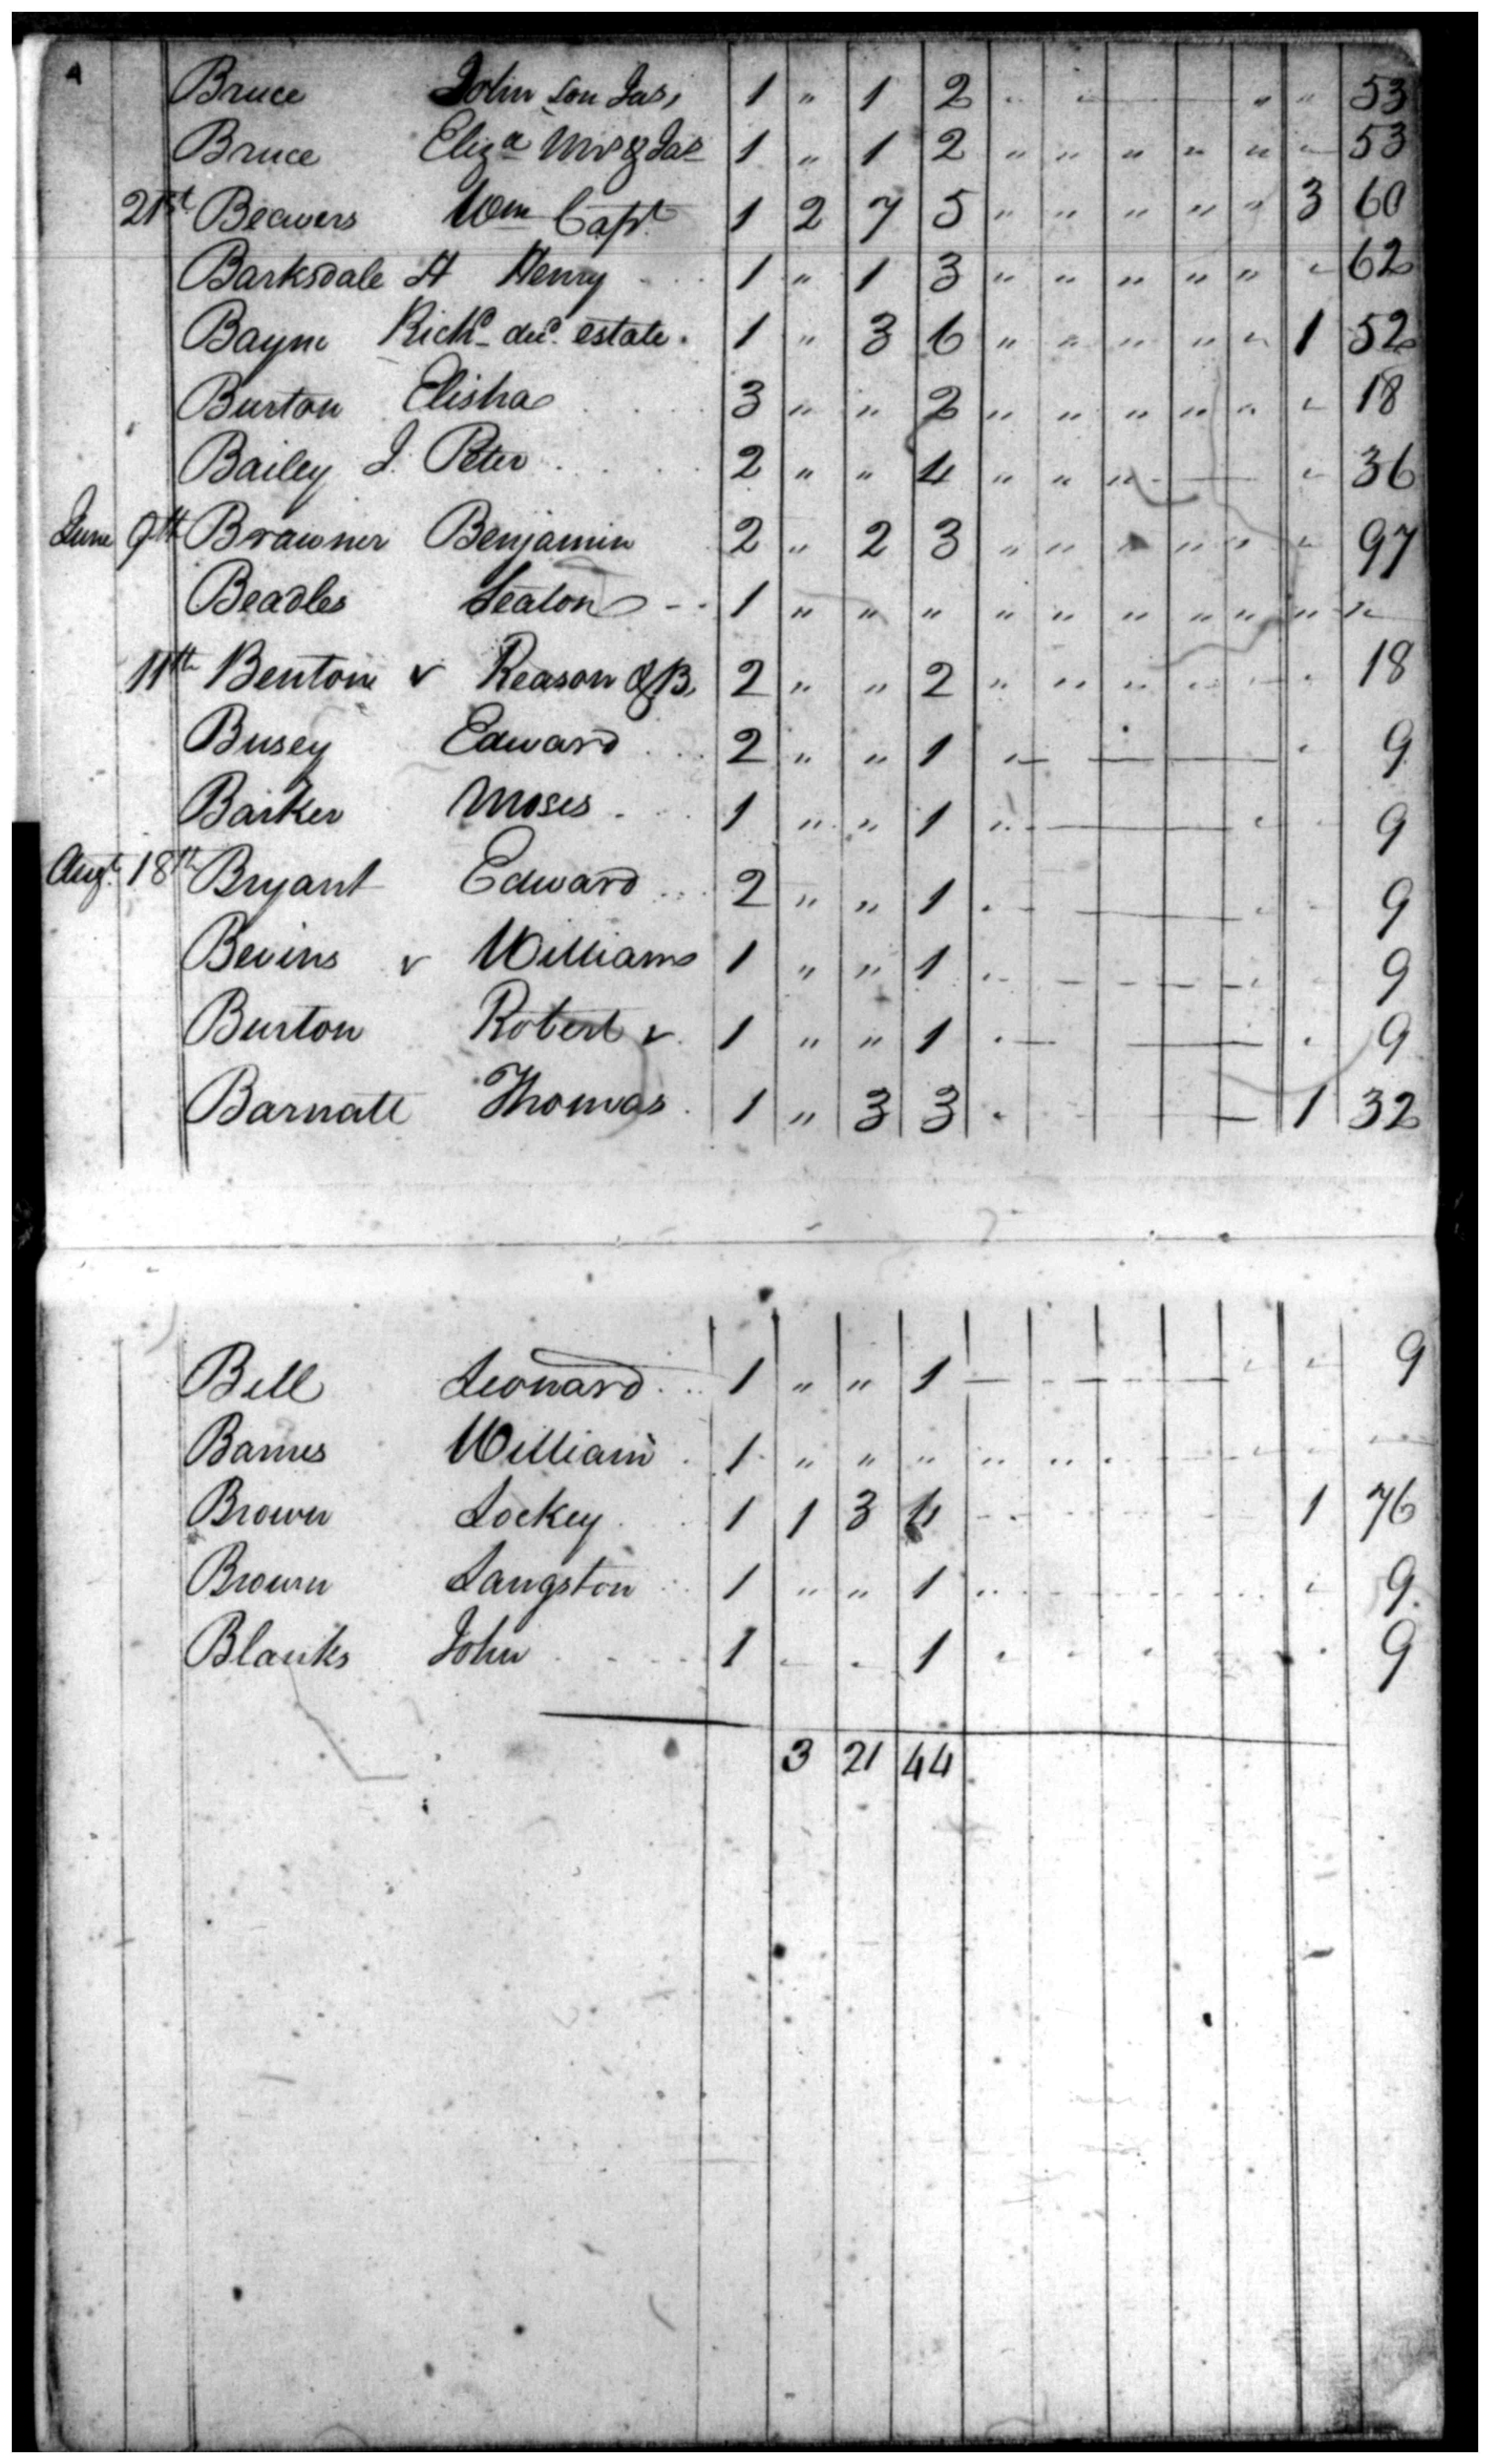 Bruce John son Jas, 1 " 1 2 " " " 53
Bruce Eliza Mrs & Jas 1 " 1 2 " " " " " " 53
21st Beavers Wm Capt. 1 2 7 5 " " " " " 3 60
Barksdale H Henry 1 " 1 3 " " " " " " 62
Bayne Richd decd. estate. 1 " 3 6 " " " " " 1 52
Burton Elisha 3 " " 2 " " " " " " 18
Bailey J. Peter 2 " " 4 " " " " 36
June 9th Brawner Benjamin 2 " 2 3 " " " " " " 97
Beadles Seaton 1 " " " " " " " " " "
11th Benton v Reason &B. 2 " " 2 " " " " " " 18
Busey Edward 2 " " 1 " 9
Barker Moses 1 " " 1 " 9
Augt. 18th Bryant Edward 2 " " 1 9
Bevins v William 1 " " 1 9
Burton Robert v 1 " " 1 9
Barnatt Thomas 1 " 3 3 1 32
Bell Leonard 1 " " 1 9
Barnes William 1 " " " " "
Brown Lockey 1 1 3 4 1 76
Brown Langston 1 " " 1 " 9
Blanks John 1 - - 1 9
3 21 44